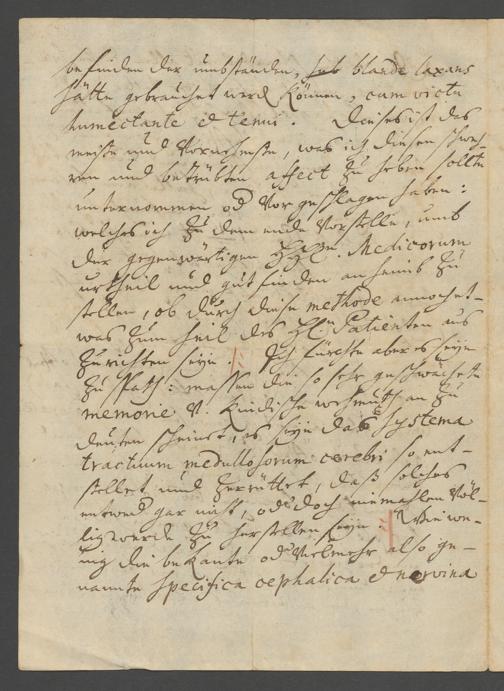 befinden der umbständen, sub blande laxans
hätte gebrauchet werd können, cum victu
humectante & tenui. Dieses ist das
meiste und Vornehmste, was ich diesen schwe-
ren und betrübten affect zu heben sollte
unternommen od Vorgeschlagen haben:
welches ich zu dem ende Vorstelle, umb
der gegenwärtigen HH. Medicorum
urtheil und gutfinden anheimb zu
stellen, ob durch diese methode annoch et-
was zum heil des H. Patienten aus
zurichten seÿe. Ich fürchte aber es seÿe
zu spath: massen die so sehr geschwächte
memorie u. Kindische wehmuth an zu
deuten scheinet, es seÿe das Systema
tractuum medullosorum cerebri so ent-
stellet und zerrüttet, daß solches
entwed gar nicht, od doch niemahlen Völ-
lig werde zu herstellen seÿn: Wie we-
nig die bekante od Vielmehr also ge-
nannte specifica cephalica & nervina